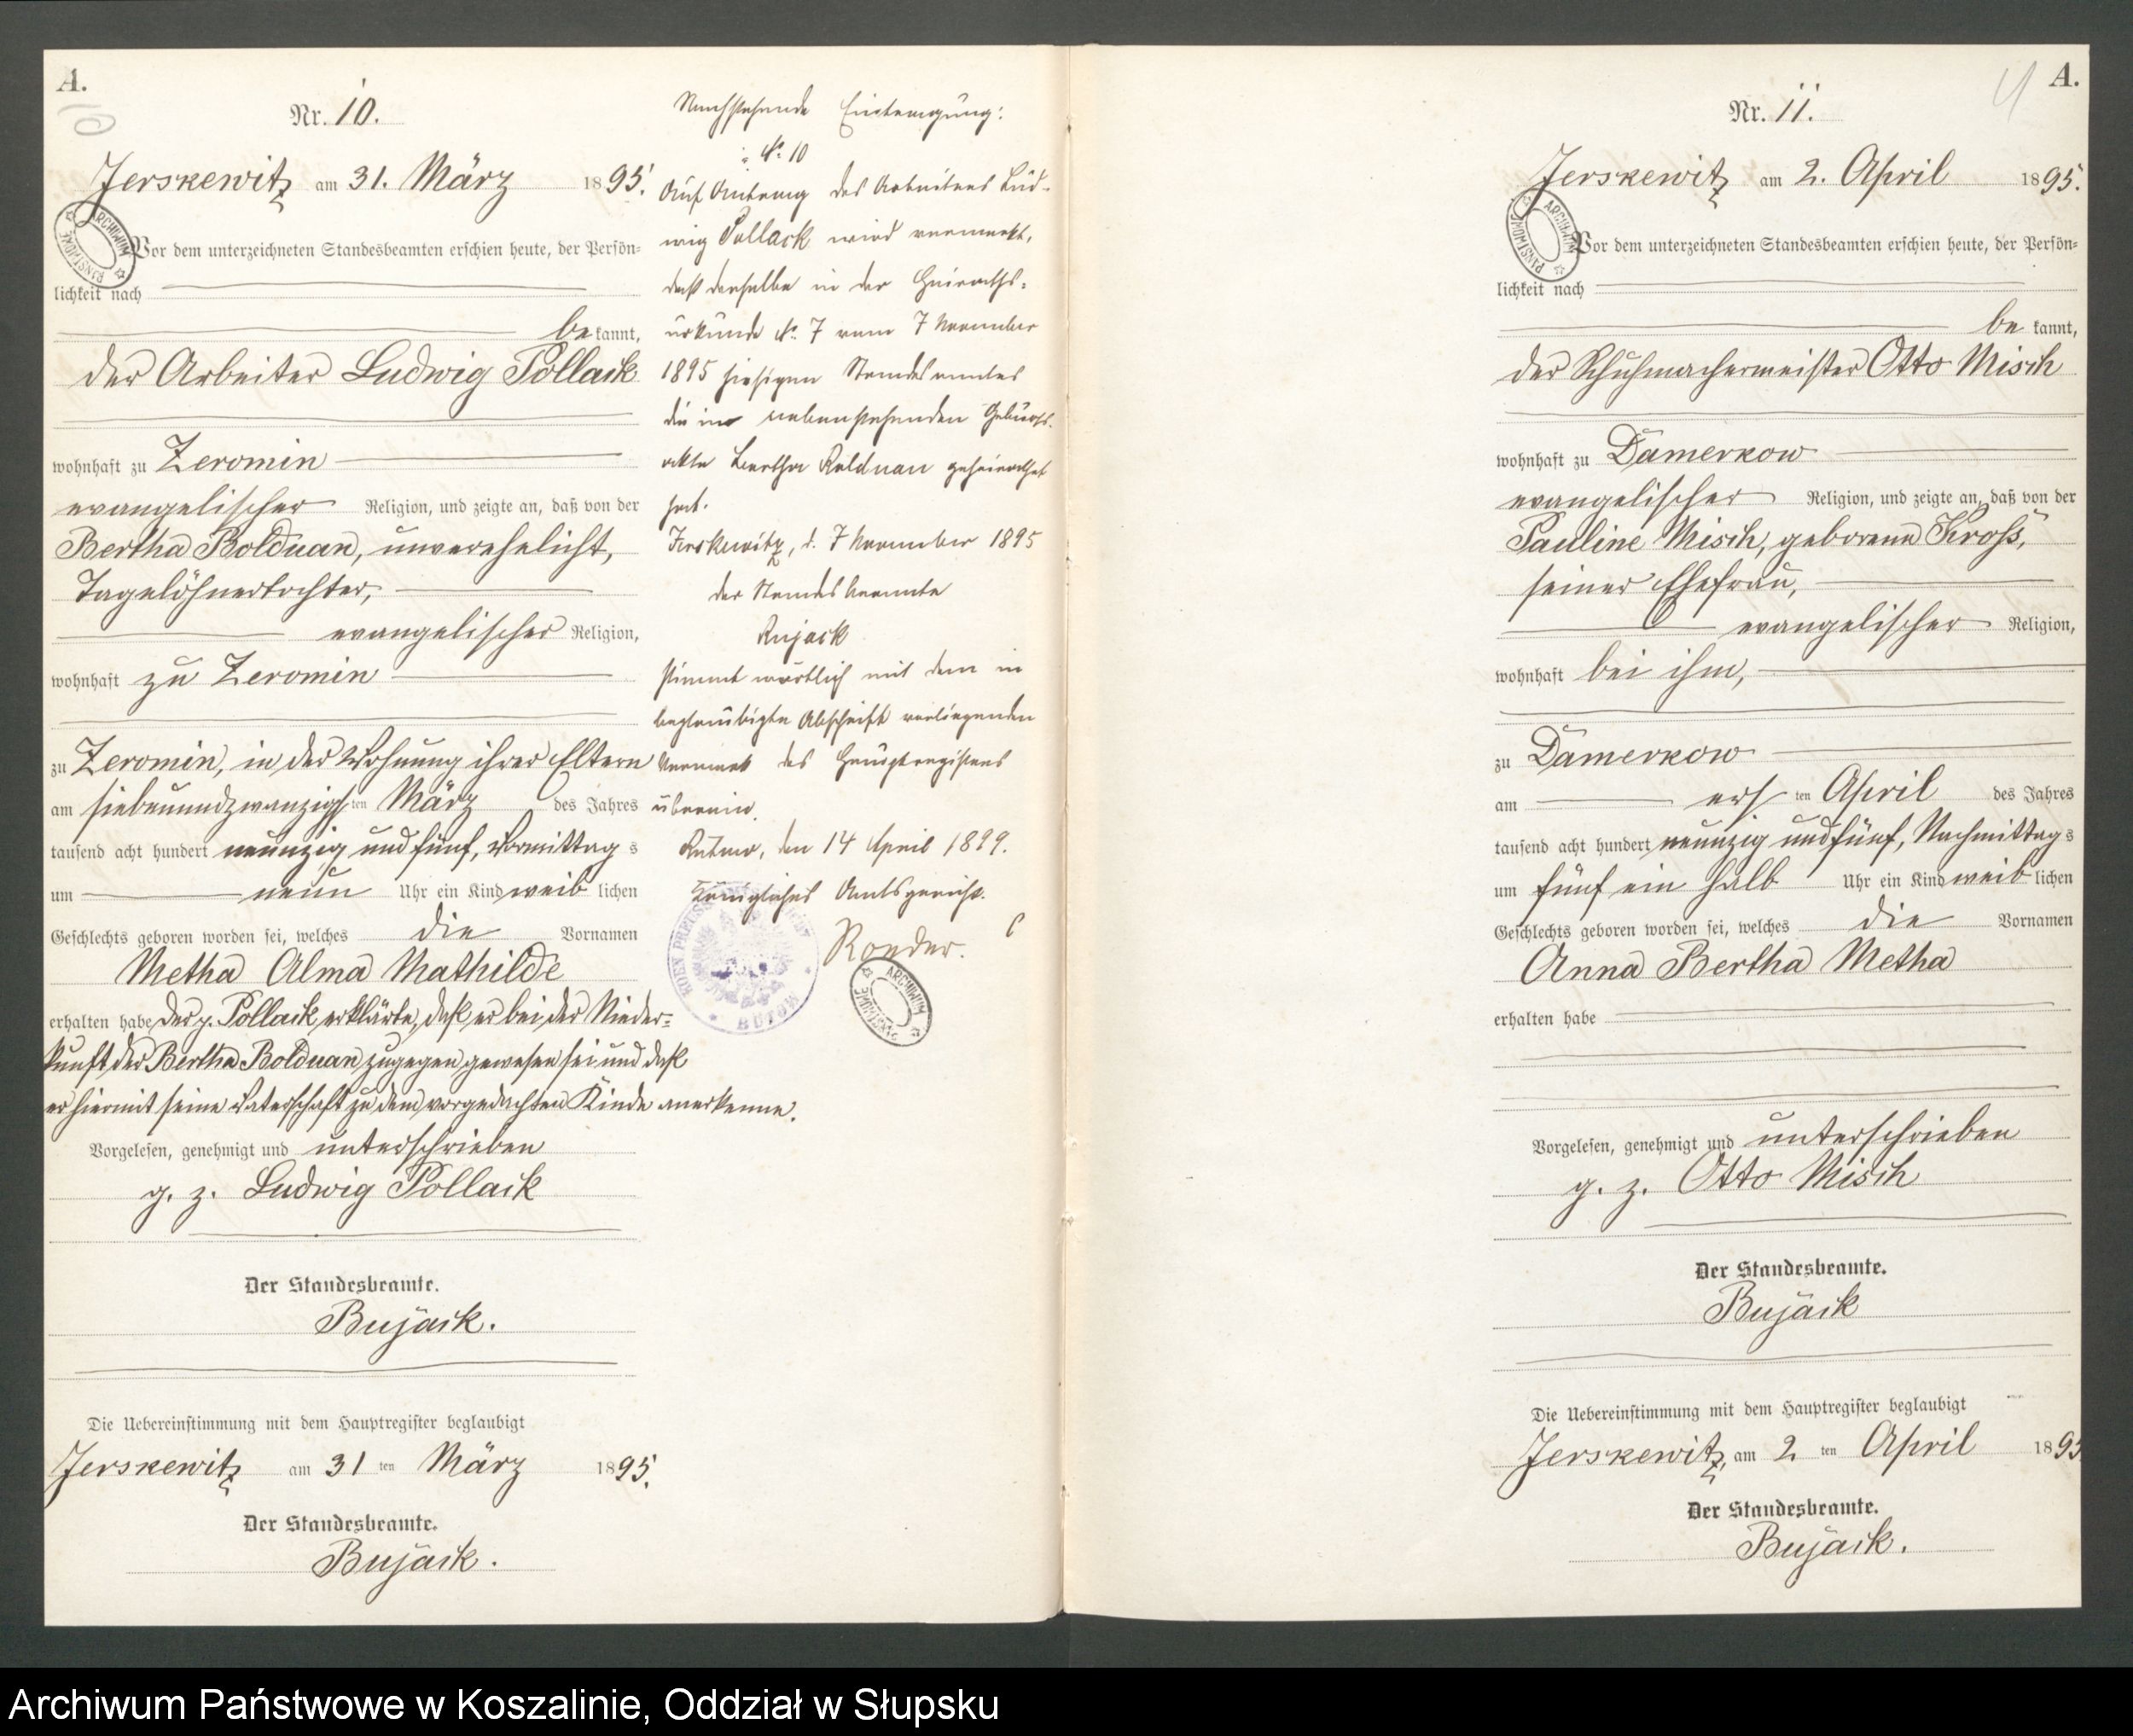 A.
10
Nr. 10.
Jerskewitz am 31. März 1895.
Vor dem unterzeichneten Standesbeamten erschien heute, der Persön=
lichkeit nach
be kannt,
der Arbeiter Ludwig Pollack
wohnhaft zu Zeromin
evangelischer Religion, und zeigte an, daß von der
Bertha Bolduan, unverehelicht,
Tagelöhnertochter,
evangelischer Religion,
wohnhaft zu Zeromin
zu Zeromin, in der Wohnung ihrer Eltern
am siebenundzwanzigsten März des Jahres
tausend acht hundert neunzig und fünf, Vormittags
um neun Uhr ein Kind weiblichen
Geschlechts geboren worden sei, welches die Vornamen
Metha Alma Mathilde
erhalten habe Der p. Pollack erklärte, daß er bei der Nieder=
kunft der Bertha Bolduan zugegen gewesen sei und daß
er hiermit seine Vaterschaft zu dem vorgedachten Kinde anerkenne.
Vorgelesen, genehmigt und unterschrieben
g. z. Ludwig Pollack
Der Standesbeamte.
Bujack.
Die Uebereinstimmung mit dem Hauptregister beglaubigt
Jerskewitz am 31 ten März 1895.
Der Standesbeamte.
Bujack.
Nachstehende Eintragung:
No. 10
Auf Antrag des Arbeiters Lud-
wig Pollack wird vermerkt,
daß derselbe in der Heiraths-
urkunde No. 7 vom 7 November
1895 hiesigen Standesamtes
die in nebenstehenden Geburts-
akte Bertha Bolduan geheirathet
hat.
Jerskewitz, d. 7 November 1895
der Standesbeamte
Bujack
stimmt wörtlich mit dem in
beglaubigter Abschrift vorliegenden
Vermerk des Hauptregisters
überein.
Bütow, den 14 April 1899.
Königliches Amtsgericht.
Roeder.
BÜTOW
ARCHIWUM PAŃSTWOWE
A.
Nr. 11.
Jerskewitz am 2. April 1895.
ARCHIWUM PAŃSTWOWE
Vor dem unterzeichneten Standesbeamten erschien heute, der Persön=
lichkeit nach
be kannt,
der Schuhmachermeister Otto Misch
wohnhaft zu Damerkow
evangelischer Religion, und zeigte an, daß von der
Pauline Misch, geborene Kroß,
seiner Ehefrau,
evangelischer Religion,
wohnhaft bei ihm,
zu Damerkow
am ersten April des Jahres
tausend acht hundert neunzig und fünf, Nachmittags
um fünf ein halb Uhr ein Kind weiblichen
Geschlechts geboren worden sei, welches die Vornamen
Anna Bertha Metha
erhalten habe
Vorgelesen, genehmigt und unterschrieben
g. z. Otto Misch
Der Standesbeamte.
Bujack
Die Uebereinstimmung mit dem Hauptregister beglaubigt
Jerskewitz, am 2 ten April 1895
Der Standesbeamte.
Bujack.
Archiwum Państwowe w Koszalinie, Oddział w Słupsku